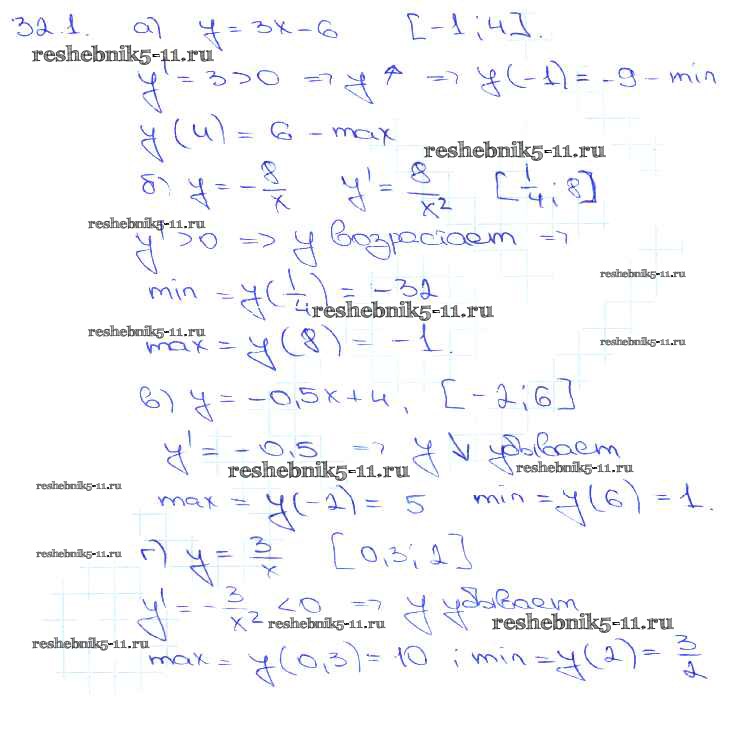 32.1. а) y = 3x - 6 [-1; 4].
reshebnik5-11.ru
y' = 3 > 0 => y ↑ => y(-1) = -9 - min
y(4) = 6 - max
reshebnik5-11.ru
б) y = -8/x y' = 8/x² [1/4; 8]
reshebnik5-11.ru
y' > 0 => y возрастает =>
reshebnik5-11.ru
min = y(1/4) = -32
reshebnik5-11.ru
reshebnik5-11.ru
reshebnik5-11.ru
max = y(8) = -1.
в) y = -0,5x + 4, [-2; 6]
y' = -0,5 => y ↓ убывает
reshebnik5-11.ru
reshebnik5-11.ru
reshebnik5-11.ru
max = y(-2) = 5 min = y(6) = 1.
reshebnik5-11.ru
г) y = 3/x [0,3; 2]
y' = -3/x² < 0 => y убывает
reshebnik5-11.ru
reshebnik5-11.ru
reshebnik5-11.ru
max = y(0,3) = 10 ; min = y(2) = 3/2